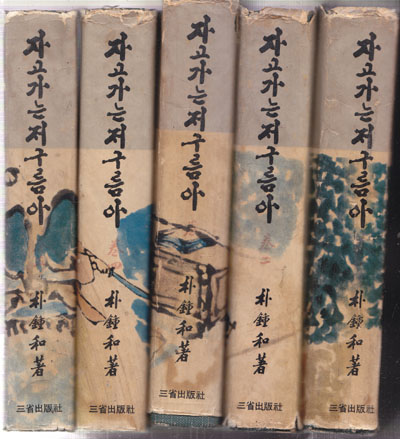 자고가는저구름아
朴鍾和著
三省出版社
자고가는저구름아
朴鍾和著
三省出版社
자고가는저구름아
朴鍾和著
三省出版社
자고가는저구름아
卷二
朴鍾和著
三省出版社
자고가는저구름아
朴鍾和著
三省出版社